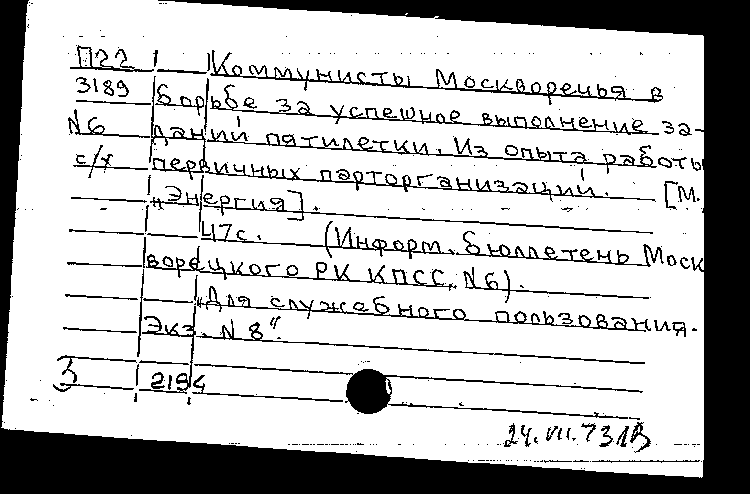 П22 Коммунисты Москворечья в
3189 борьбе за успешное выполнение за-
N6 даний пятилетки. Из опыта работы
с/х первичных парторганизаций. [М.,
„Энергия].
47с. (Информ. бюллетень Моск
ворецкого РК КПСС, N6).
„Для служебного пользования.
Экз. N 8".
3 2194
24.VII.73